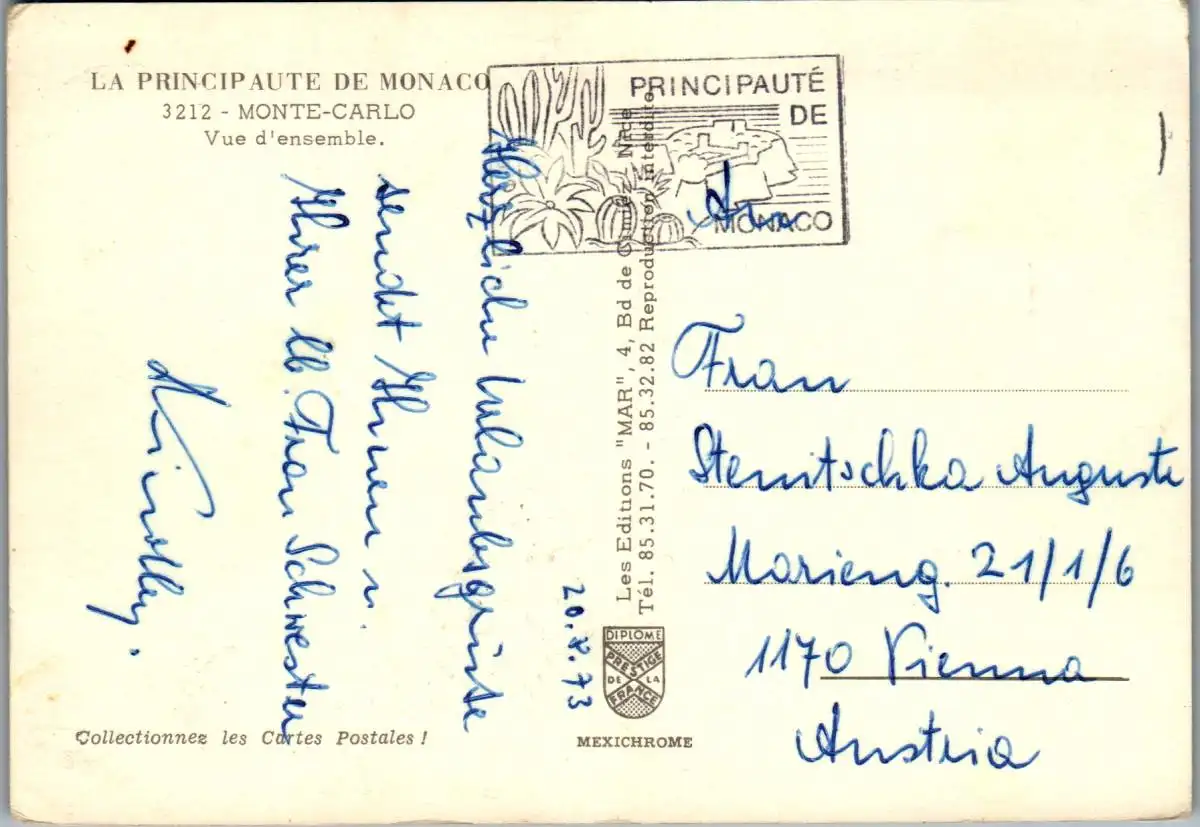 LA PRINCIPAUTE DE MONACO
3212 - MONTE-CARLO
Vue d'ensemble.
PRINCIPAUTÉ
DE
MONACO
20. 8. 73
Herzliche Urlaubsgrüsse
sendet Ihnen u.
Ihrer lb. Frau Schwester
Les Editions "MAR", 4, Bd de Cimiez - Nice
Tél. 85.31.70. - 85.32.82 Reproduction interdite
An
Frau
Stenitschka Auguste
Marieng. 21/1/6
1170 Vienna
Austria
DIPLOME
PRESTIGE
DE LA
FRANCE
MEXICHROME
Collectionnez les Cartes Postales !